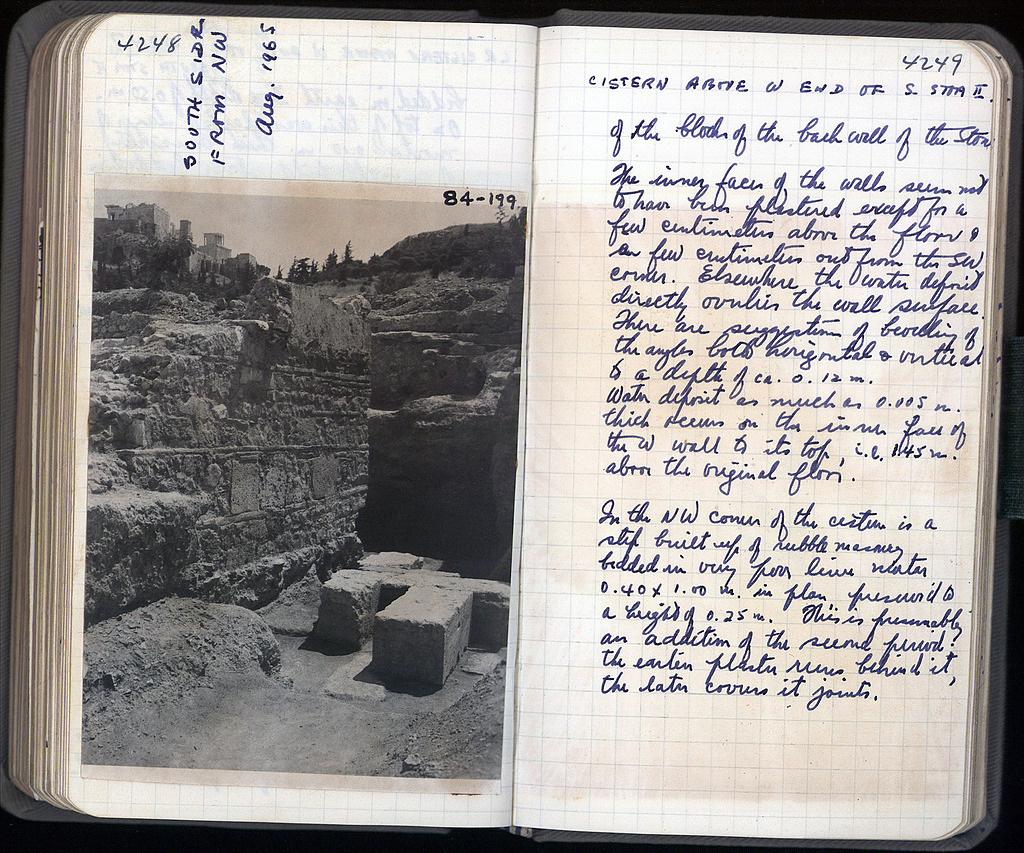 4248
SOUTH SIDE
FROM NW
Aug. 1965
84-199
4249
CISTERN ABOVE W END OF S. STOA II.
of the blocks of the back wall of the Stoa
The inner faces of the walls seem not
to have been plastered except for a
few centimeters above the floor &
a few centimeters out from the SW
corner. Elsewhere the water deposit
directly overlies the wall surface.
There are suggestions of bevelling of
the angles both horizontal & vertical
to a depth of ca. 0.12 m.
Water deposit as much as 0.005 m.
thick occurs on the inner face of
the W wall to its top, i.e. 1.45 m.
above the original floor.
In the NW corner of the cistern is a
step built up of rubble masonry
bedded in very poor lime mortar
0.40 x 1.00 m. in plan preserved to
a height of 0.25 m. This is presumably
an addition of the second period?
the earlier plaster runs behind it,
the later covers it joints.